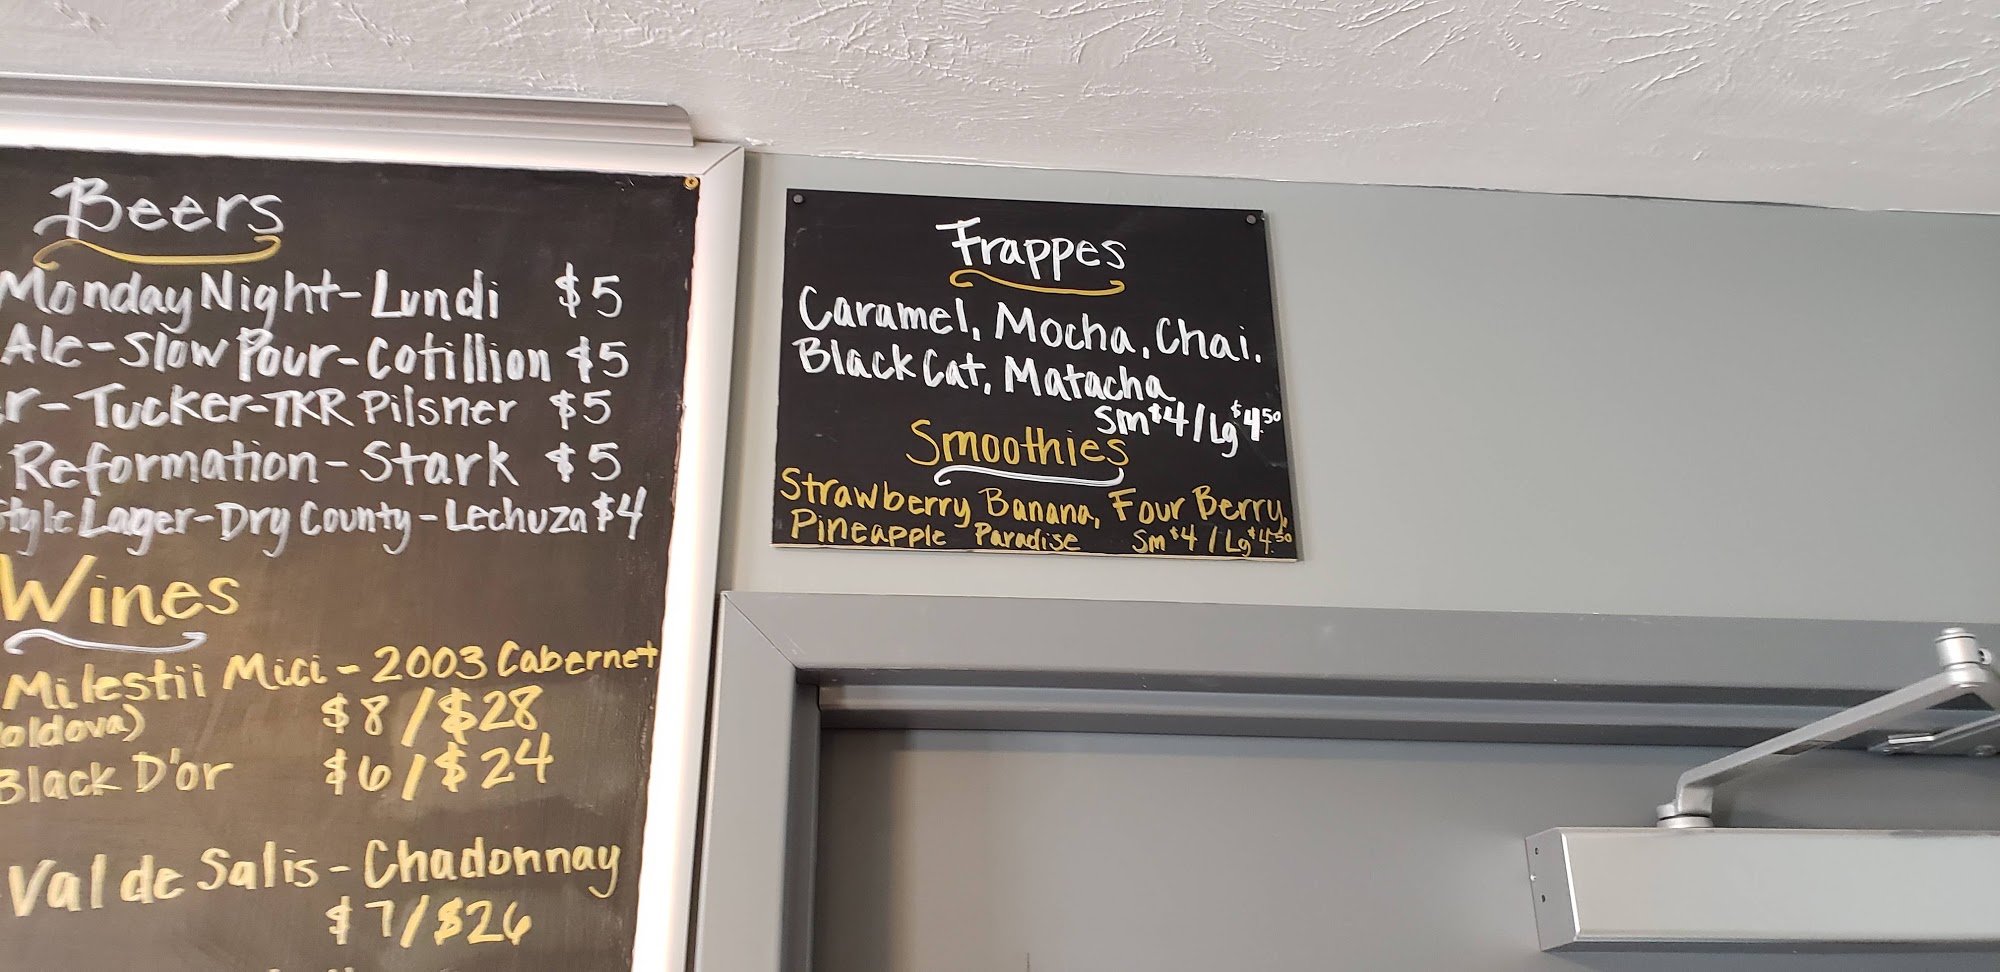 Beers
Monday Night-Lundi $5
Ale-Slow Pour-Cotillion $5
-Tucker-TKR Pilsner $5
Reformation-Stark $5
Style Lager-Dry County-Lechuza $4
Wines
Milestii Mici-2003 Cabernet
oldova) $8/$28
Black D'or $6/$24
Val de Salis-Chadonnay
$7/$26
Frappes
Caramel, Mocha, Chai.
Black Cat, Matacha
Sm $4/Lg $4.50
Smoothies
Strawberry Banana, Four Berry,
Pineapple Paradise Sm $4/Lg $4.50